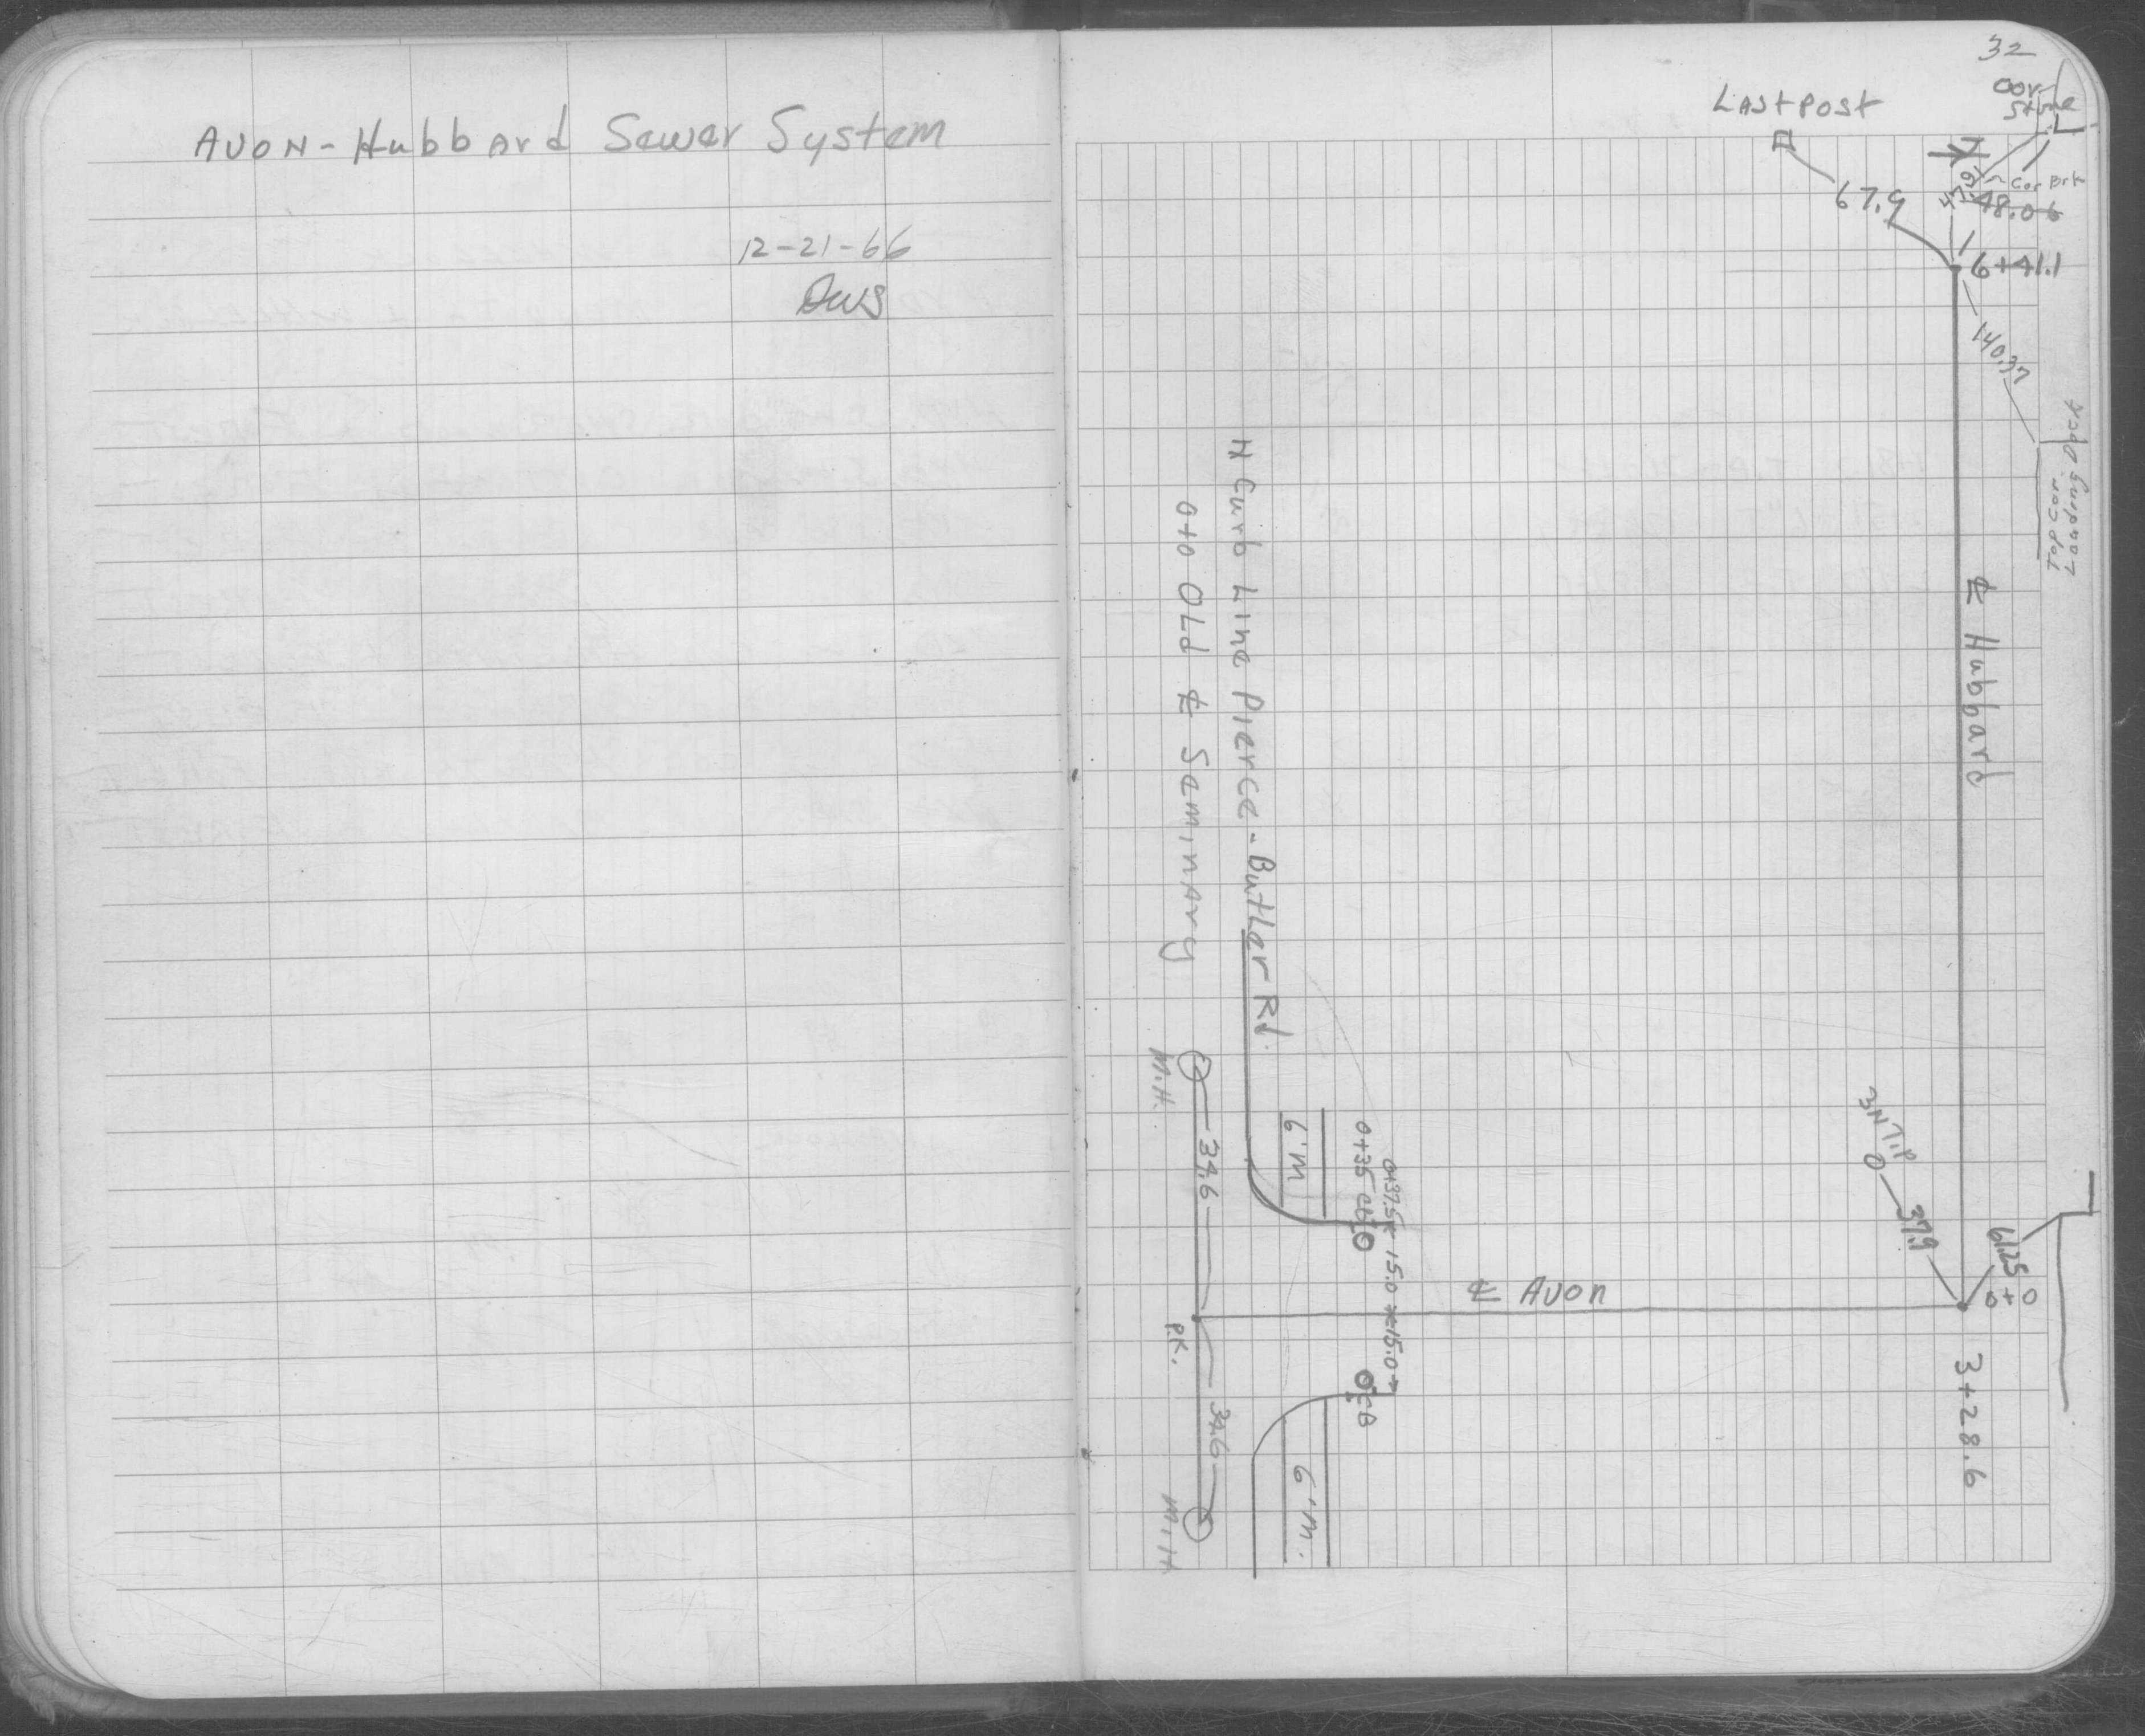 AVON-Hubbard Sewer System
12-21-66
DWS
32
Last Post
Cor
Stone
Cor Brk
67.9
48.06
6+41.1
140.37
Top Cor.
Loading Dock
℄ Hubbard
N Curb Line Pierce-Butler Rd.
0+0 Old ℄ Seminary
M.H.
34.6
6"M
0+35 CB
0+37.5
15.0
15.0
3N Tip
37.9
61.25
0+0
℄ Avon
P.K.
3+28.6
CB
34.6
6"M.
M.H.